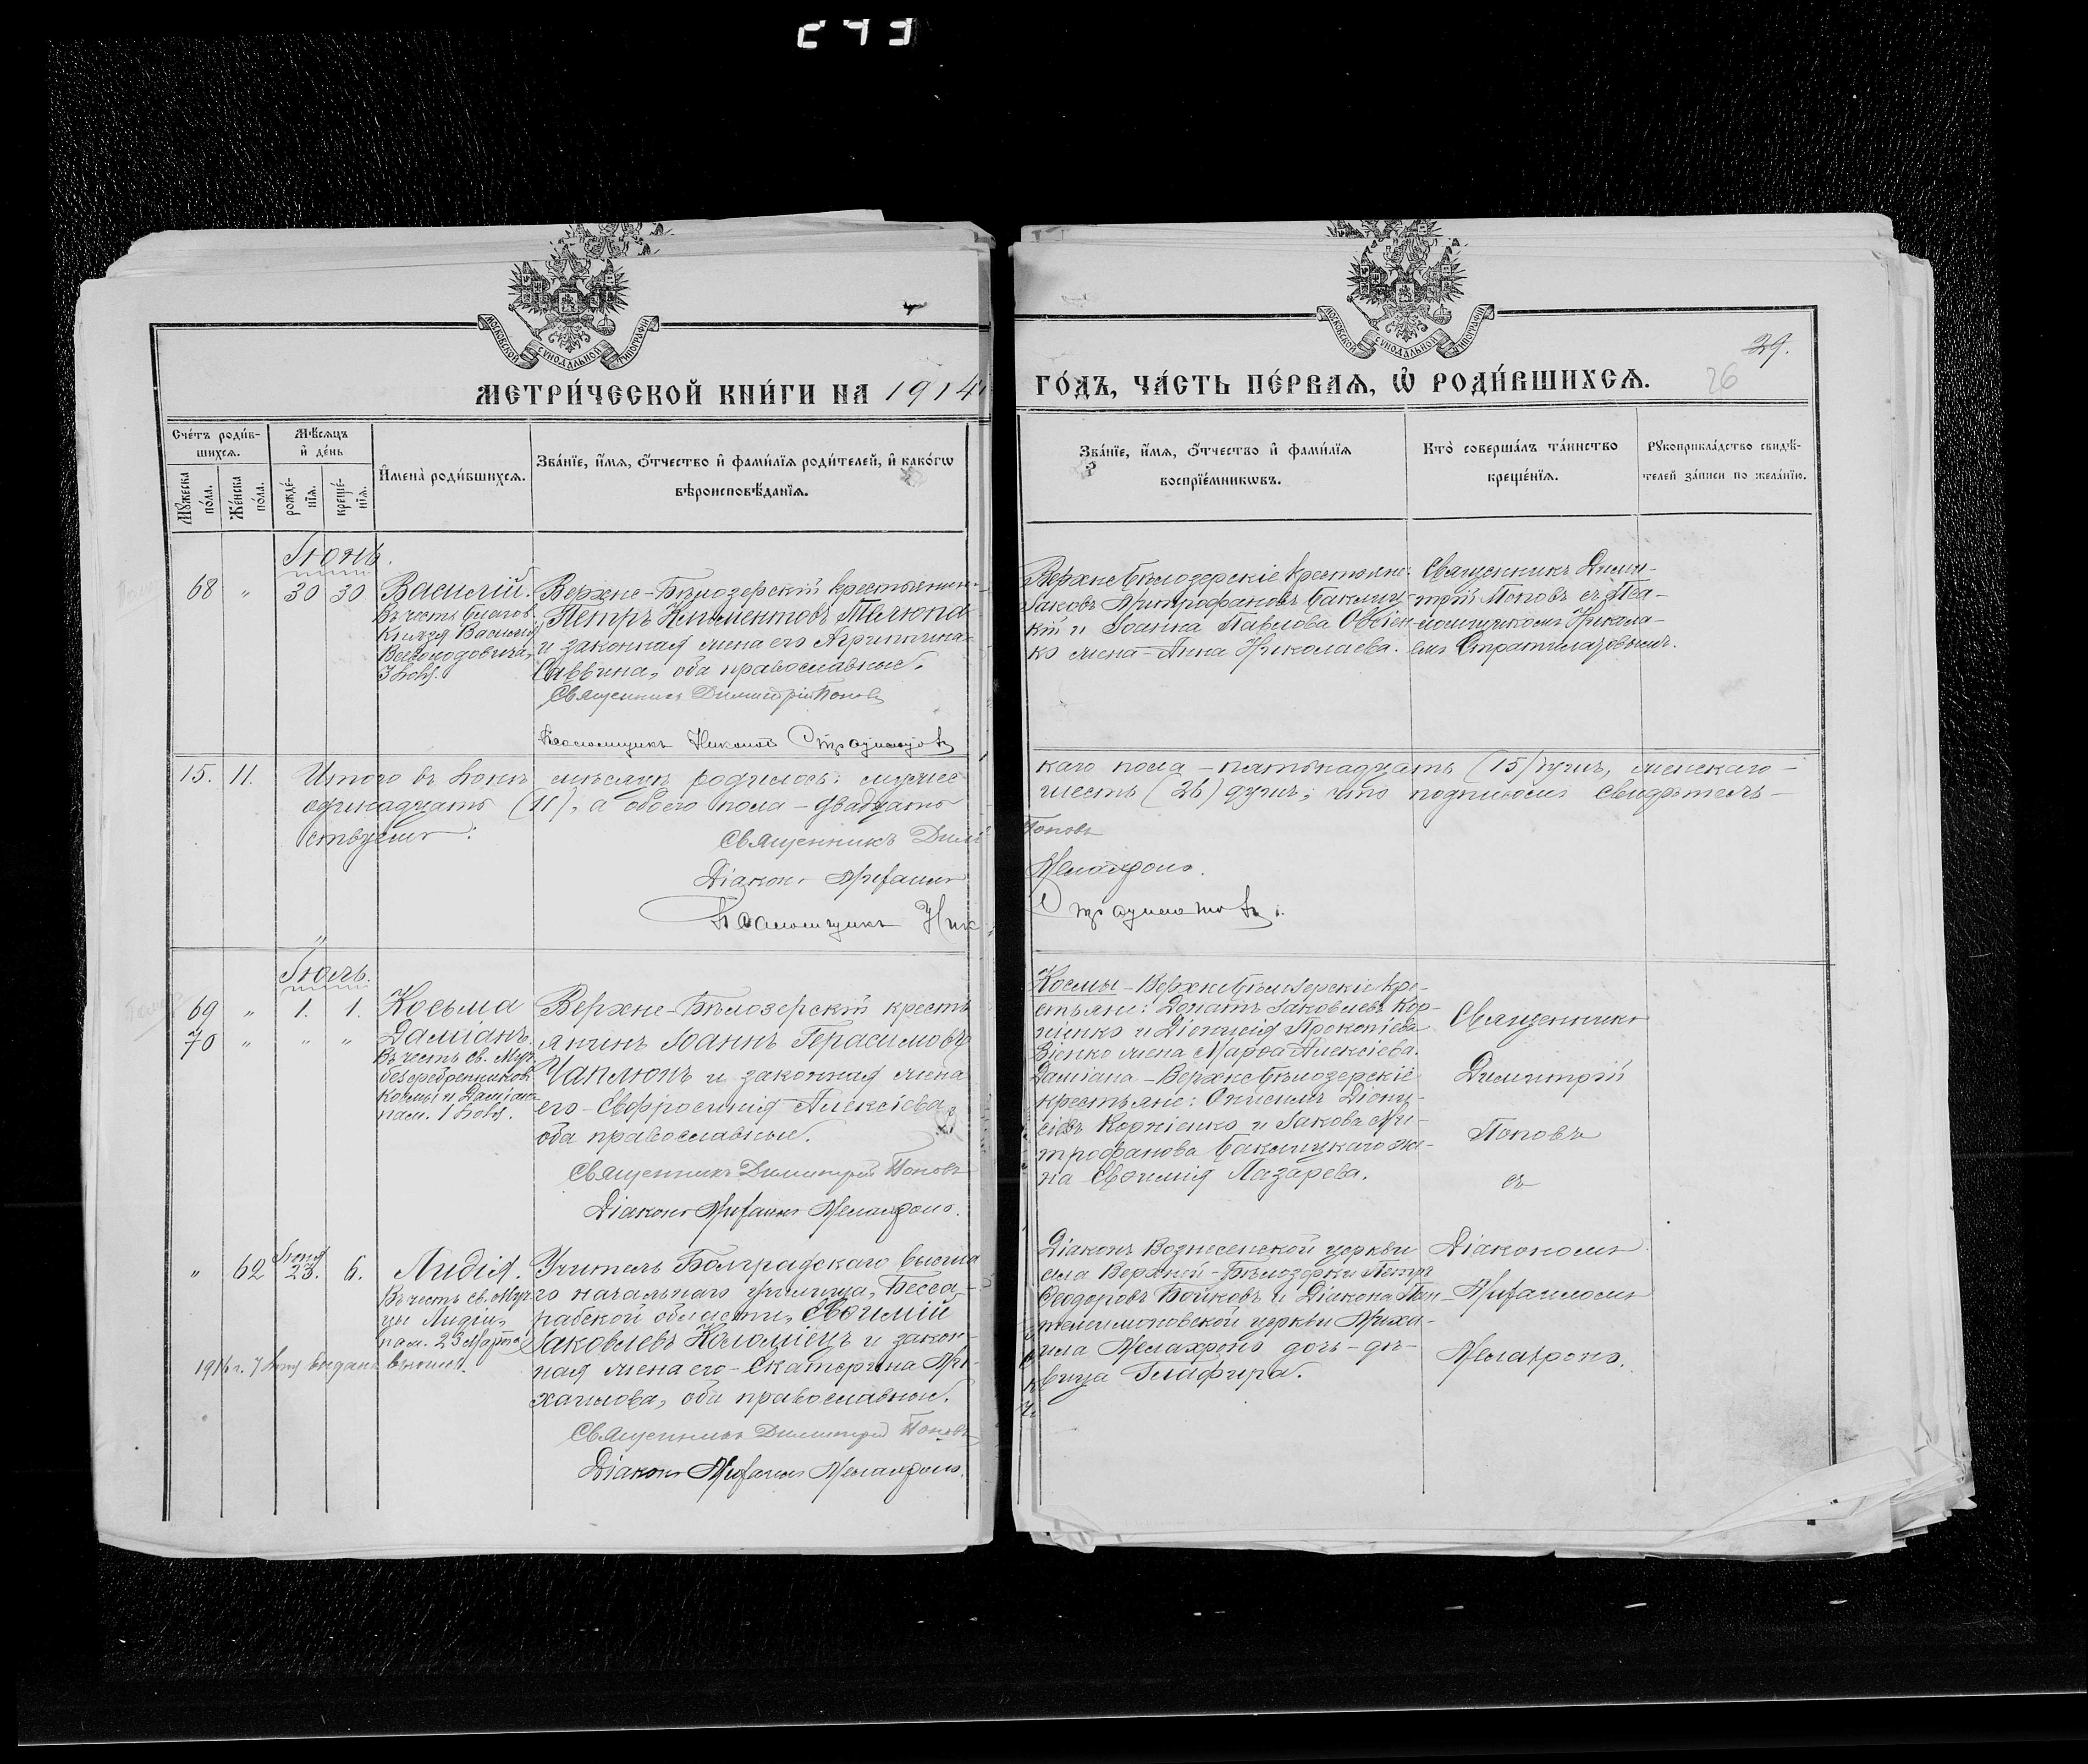 243
МОСКОВСКОЙ СУНОДАЛЬНОЙ ТИПОГРАФИИ
МОСКОВСКОЙ СУНОДАЛЬНОЙ ТИПОГРАФИИ
29.
26
МЕТРИ́ЧЕСКОЙ КНИ́ГИ НА 1914
ГО́ДЪ, ЧА́СТЬ ПЕ́РВАѦ, Ѽ РОДИ́ВШИХСѦ.
Сче́тъ роди́в-
шихсѧ.
Мꙋжеска по́ла.
Же́нска по́ла.
Мѣ́сѧцъ
и҆ де́нь
рожде́-
нїѧ.
креще́-
нїѧ.
И҆мена̀ роди́вшихсѧ.
Зва́нїе, и҆́мѧ, ѻ҆́тчество и҆ фами́лїѧ роди́телей, и҆ како́гѡ
вѣроисповѣ́данїѧ.
Зва́нїе, и҆́мѧ, ѻ҆́тчество и҆ фами́лїѧ
воспрїе́мникѡвъ.
Кто̀ соверша́лъ та́инство
креще́нїѧ.
Рꙋкоприкла́дство свидѣ́-
телей за́писи по жела́нїю.
Іюнь.
68 " 30 30 Василій.
Въ честь благов.
Князя Василія
Всеволодовича,
3 Іюля.
Верхне-Бѣлозерскій крестьянин
Петръ Климентовъ Телюпа
и законная жена его Агрипина
Саввина, оба православные.
Священникъ Димитрій Поповъ
Псаломщикъ Николай
Верхне Бѣлозерскіе крестьяне:
Іаковъ Митрофановъ Баклиц-
кій и Іоанна Павлова Овсіен-
ко жена - Анна Николаева.
Священникъ Дими-
трій Поповъ съ Пса-
ломщикомъ Никола-
емъ Стратилатовымъ.
15. 11. Итого въ Іюнѣ мѣсяцѣ родилось: мужес
каго пола - пятьнадцать (15) душъ, женскаго -
одинадцать (11), а обоего пола - двадцать
шесть (26) душъ; что подписомъ свидѣтель-
ствуемъ:
Священникъ Дим
Поповъ
Діаконъ Михаилъ
Мелахроно.
Псаломщикъ Ник
Іюль.
69 " 1. 1. Косьма
70 " " " Даміанъ.
Въ честь св. Муч.
безсребренниковъ
Космы и Даміана
пам. 1 Іюля.
Верхне-Бѣлозерскій кресть
янинъ Іоаннъ Герасимовъ
Чаплюнъ и законная жена
его - Евфросинія Алексіева
оба православные.
Священникъ Димитрій Поповъ
Діаконъ Михаилъ Мелахроно.
Космы - Верхне Бѣлозерскіе кре-
стьяне: Донатъ Іаковлевъ Кор-
ніенко и Діонисія Прокопіева
жена Марѳа Алексіева.
Даміана - Верхне Бѣлозерскіе
крестьяне: Онисимъ Діони-
сіевъ Корніенко и Іакова Ми-
трофанова Баклицкаго же-
на - Евфимія Лазарева.
Священникъ
Димитрій
Поповъ
съ
" 62 Іюня 23. 6. Лидія.
Въ честь св. Муч-
цы Лидіи,
пам. 23 Марта.
1916 г. выдана выпись.
Учитель Болградскаго высша
го начальнаго училища, Бесса-
рабской области, Евфимій
Іаковлевъ Коломіецъ и закон-
ная жена его - Екатерина Ми-
хаилова, оба православные.
Священникъ Димитрій Поповъ
Діаконъ Михаилъ Мелахроно.
Діаконъ Вознесенской церкви
села Верхней-Бѣлозерки Петръ
Ѳеодоровъ Бойковъ и Діакона Пан-
телеимоновской церкви Миха-
ила Мелахроно дочь - дѣ-
вица Глафира.
Діакономъ
Михаиломъ
Мелахроно.